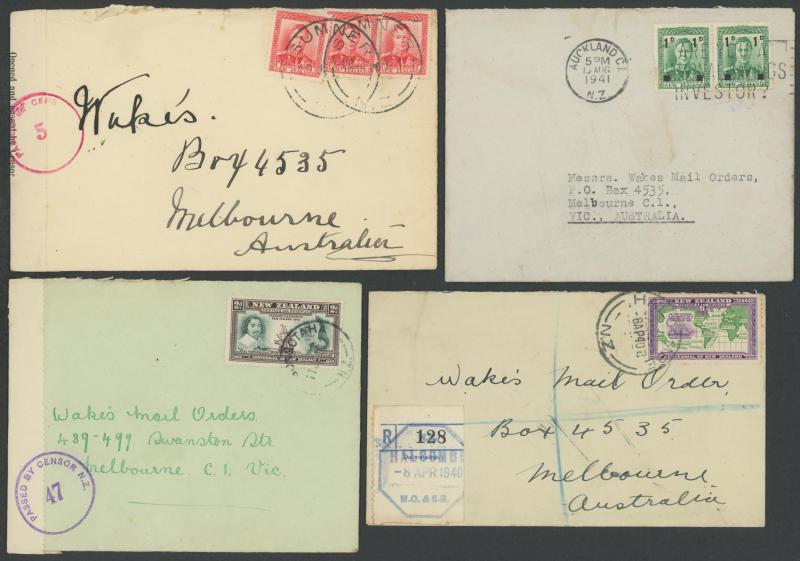 SUMNER
Wake's.
Box 4535
Melbourne
Australia
5
AUCKLAND C.1.
5 PM
13 AUG
1941
N.Z.
1D 1D 1D 1D
INVESTOR?
Messrs. Wakes Mail Orders,
P.O. Box 4535,
Melbourne C.1.,
VIC., AUSTRALIA.
2D NEW ZEALAND 2D
CENTENNIAL OF NEW ZEALAND
Wake's Mail Orders
489-499 Swanston Str.
Melbourne C.1. Vic.
PASSED BY CENSOR N.Z.
47
NEW ZEALAND
6D
CENTENNIAL OF NEW ZEALAND
8AP40
N.Z
Wake's Mail Order
Box 4535
Melbourne
Australia
R 128
HALCOMBE
-8 APR 1940
M.O. & S.B.